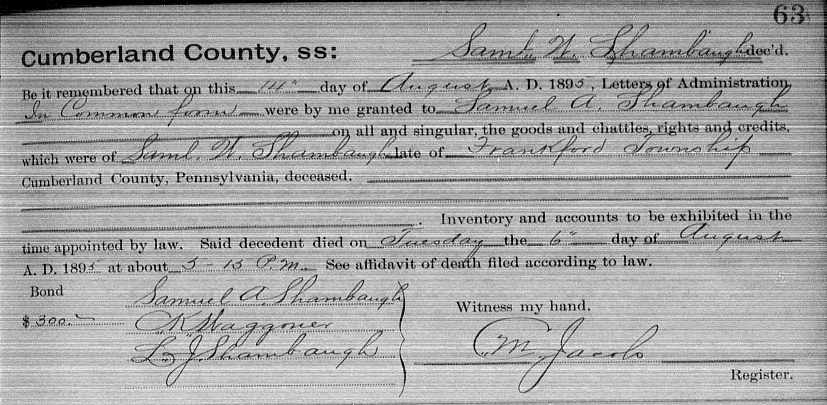 63
Cumberland County, ss: Saml. W. Shambaugh dec'd.
Be it remembered that on this 14" day of August A. D. 1895, Letters of Administration
In Common form were by me granted to Samuel A. Shambaugh
on all and singular, the goods and chattles, rights and credits,
which were of Saml. W. Shambaugh late of Frankford Township
Cumberland County, Pennsylvania, deceased.
. Inventory and accounts to be exhibited in the
time appointed by law. Said decedent died on Tuesday the 6" day of August
A. D. 1895 at about 5-15 P.M. See affidavit of death filed according to law.
Bond
Samuel A. Shambaugh
Witness my hand.
$300.-
C K Waggoner
L. J. Shambaugh
M. Jacobs
Register.